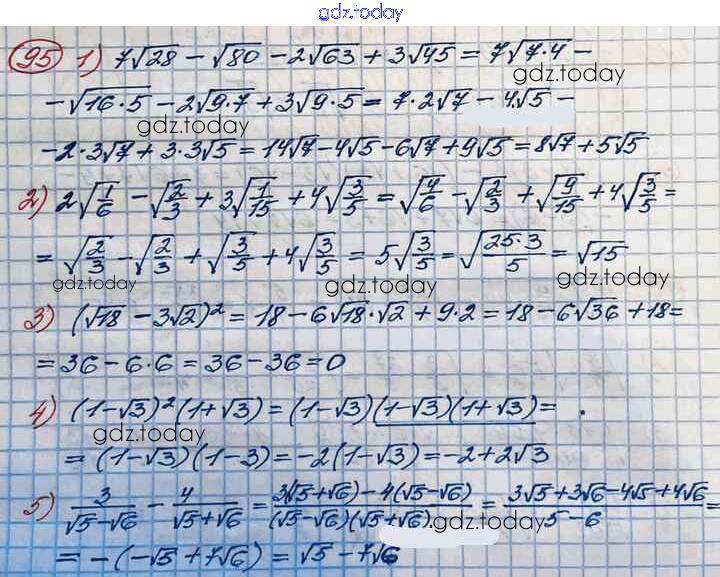 gdz.today
95 1) 7√28 - √80 - 2√63 + 3√45 = 7√7·4 -
gdz.today
-√16·5 - 2√9·7 + 3√9·5 = 7·2√7 - 4√5 -
gdz.today
-2·3√7 + 3·3√5 = 14√7 - 4√5 - 6√7 + 9√5 = 8√7 + 5√5
2) 2√1/6 - √2/3 + 3√1/15 + 4√3/5 = √4/6 - √2/3 + √9/15 + 4√3/5 =
= √2/3 - √2/3 + √3/5 + 4√3/5 = 5√3/5 = √25·3/5 = √15
gdz.today gdz.today gdz.today
3) (√18 - 3√2)² = 18 - 6√18·√2 + 9·2 = 18 - 6√36 + 18 =
= 36 - 6·6 = 36 - 36 = 0
4) (1-√3)²(1+√3) = (1-√3)(1-√3)(1+√3) =
gdz.today
= (1-√3)(1-3) = -2(1-√3) = -2+2√3
5) 3/(√5-√6) - 4/(√5+√6) = (3(√5+√6) - 4(√5-√6))/((√5-√6)(√5+√6)) = (3√5+3√6-4√5+4√6)/(5-6) =
gdz.today
= -(-√5 + 7√6) = √5 - 7√6